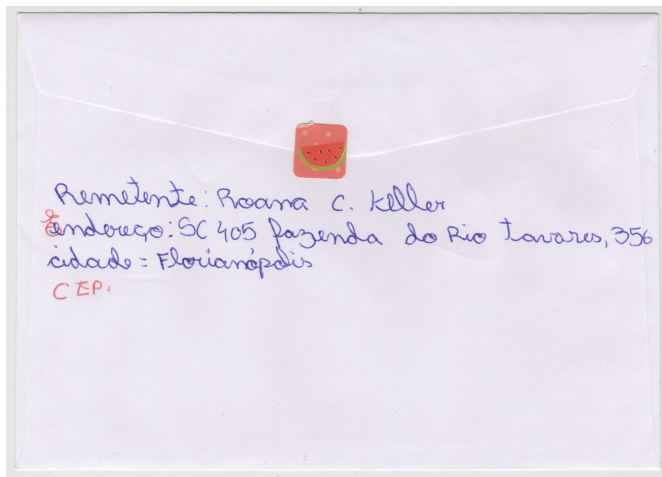 Remetente: Roana C. Keller
Endereço: SC 405 fazenda do Rio Tavares, 356
cidade = Florianópolis
CEP.